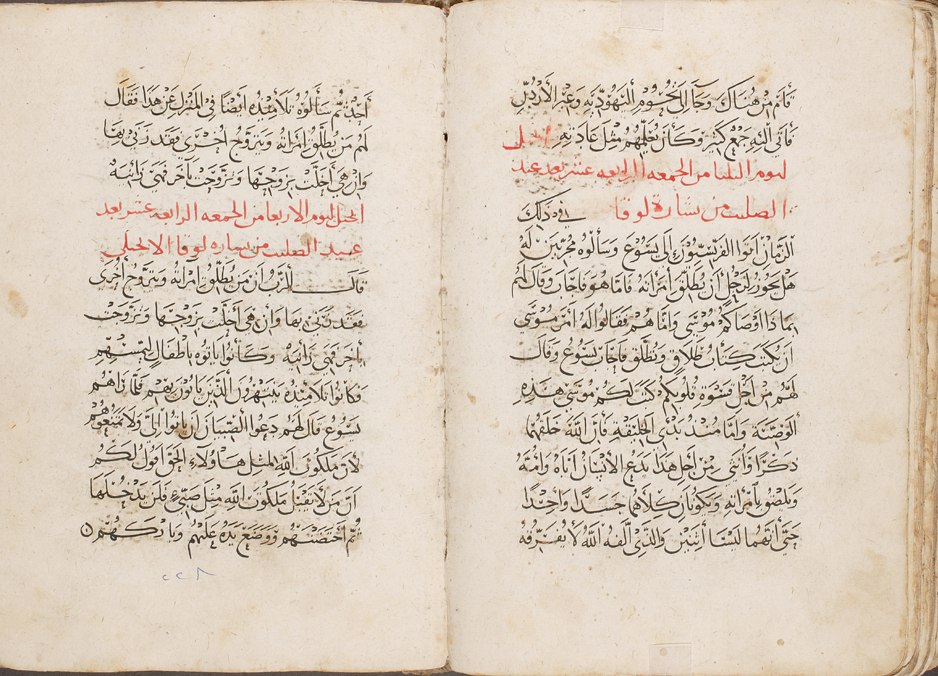 قام من هناك وجا الى تخوم اليهوديه وعبر الأردن
فاتى اليه جمع كثير وكان يعلمهم مثل عادته انجيل
ليوم الثلثا من الجمعه الرابعه عشر بعد عيد
الصليب من بشارة لوقا في ذلك
الزمان اتوا الفريسيون إلى يسوع وسالوه مجربين له
هل يجوز لرجل ان يطلق امرأته فاما هو فاجاب وقال لهم
بماذا اوصاكم موسى واما هم فقالوا له امر موسى
ان يكتب كتاب طلاق ويطلق فاجاب يسوع وقال
لهم من اجل قسوة قلوبكم كتب لكم موسى هذه
الوصية واما منذ بدئ الخليقة فان الله خلقهما
ذكرا وأنثى من اجل هذا يدع الأنسان اباه وامه
ويلصق بامرأته ويكونان كلاهما جسدا واحدا
حتى أنهما ليسا أثنين والذي الفه الله لا يفرقه
أحد ثم سألوه تلاميذه ايضا في المنزل عن هذا فقال
لهم من يطلق امرأته ويتزوج اخرى فقد زنى بها
وان هي أخلت بزوجها وتزوجت بآخر فهي زانيه
انجيل ليوم الاربعا من الجمعه الرابعه عشر بعد
عيد الصليب من بشاره لوقا الانجيلى
قال الرب ان من يطلق امرأته ويتزوج أخرى
فقد زنى بها وان هي أخلت بزوجها وتزوجت
بآخر فهي زانيه وكانوا ياتوه باطفال ليمسهم
وكانوا تلاميذه ينتهرون الذين ياتون بهم فلما رآهم
يسوع قال لهم دعوا الصبيان ان ياتوا الى ولا تمنعوهم
لأن ملكوت الله لمثل هاولاء الحق اقول لكم
ان من لا يقبل ملكوت الله مثل صبي فلن يدخلها
ثم أحتضنهم ووضع يده عليهم وباركهم
٢٢٨